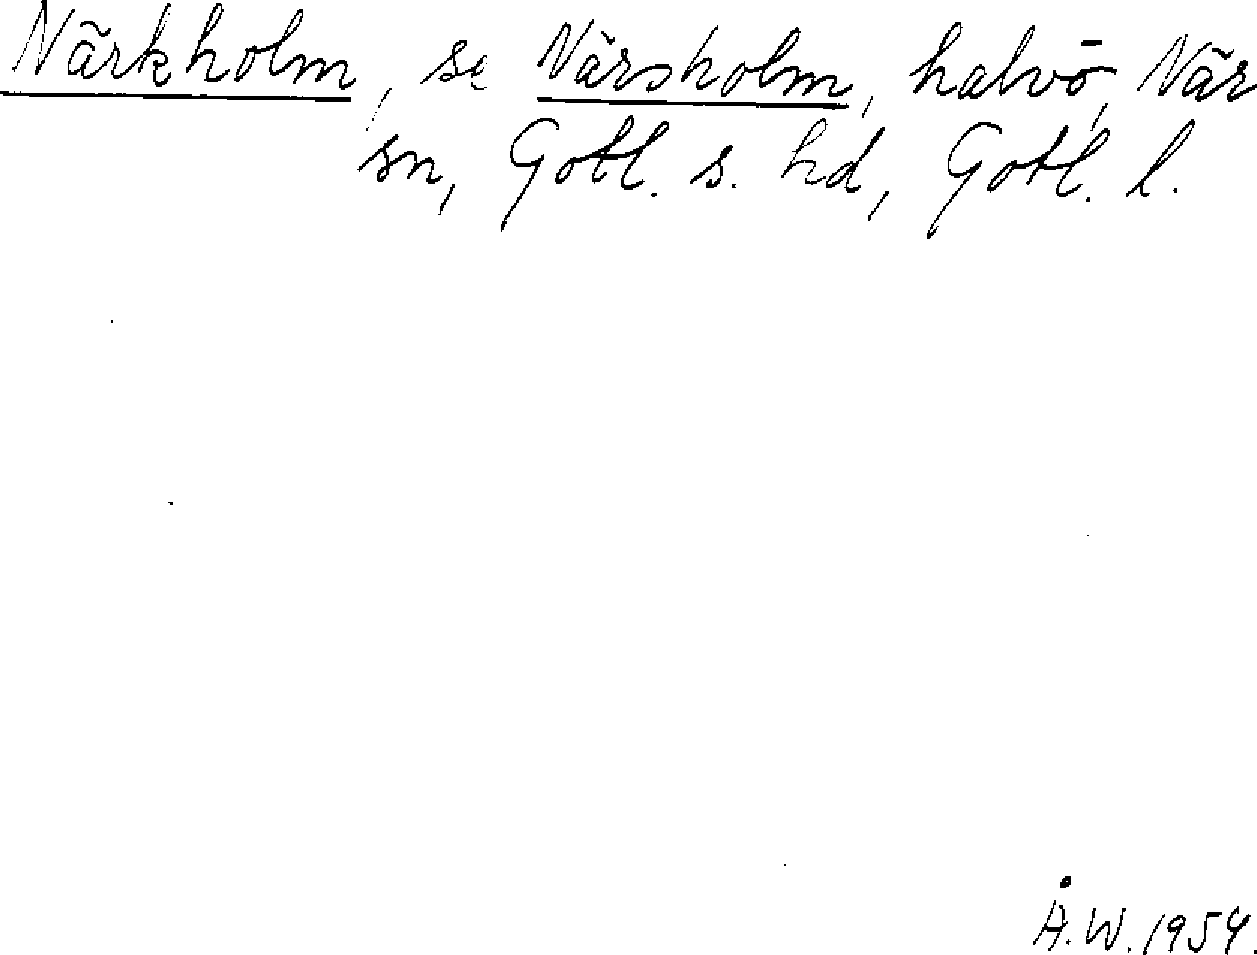 Närkholm, se Närsholm, halvö, När
sn, Gotl. s. hd, Gotl. l.
Å.W. 1954.